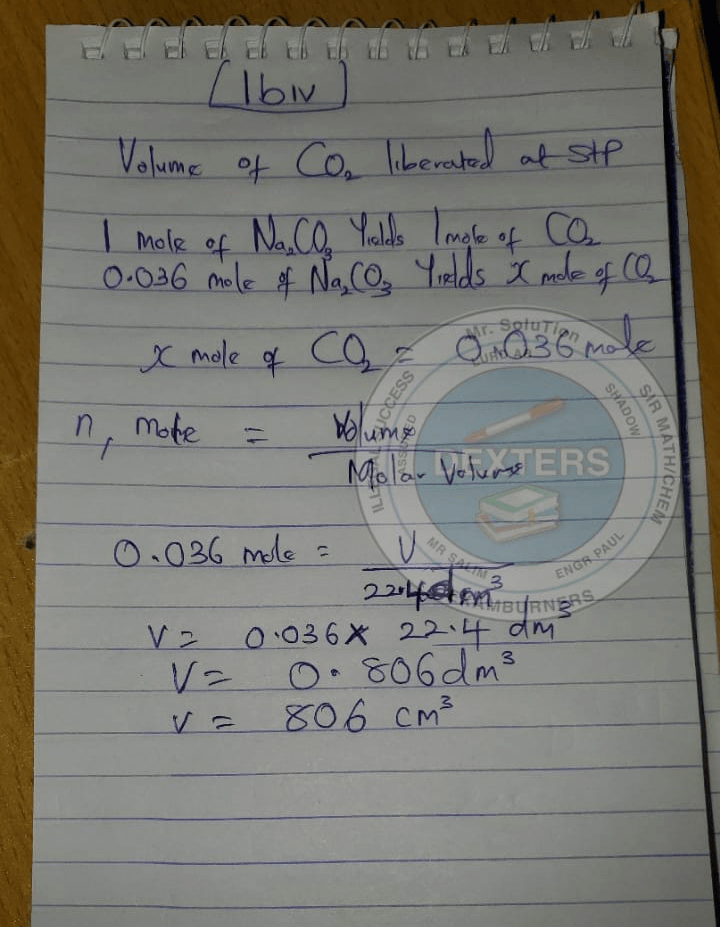 [1biv]
Volume of CO₂ liberated at STP
1 mole of Na₂CO₃ Yields 1 mole of CO₂
0.036 mole of Na₂CO₃ Yields x mole of CO₂
x mole of CO₂ = 0.036 mole
n, mole = Volume
Molar Volume
0.036 mole = V
22.4 dm³
V = 0.036 x 22.4 dm³
V = 0.806 dm³
v = 806 cm³
Mr. SoluTion
SUCCESS
ASSURED
SHADOW
SIR MATH/CHEM
DEXTERS
MR SALIM
ENGR PAUL